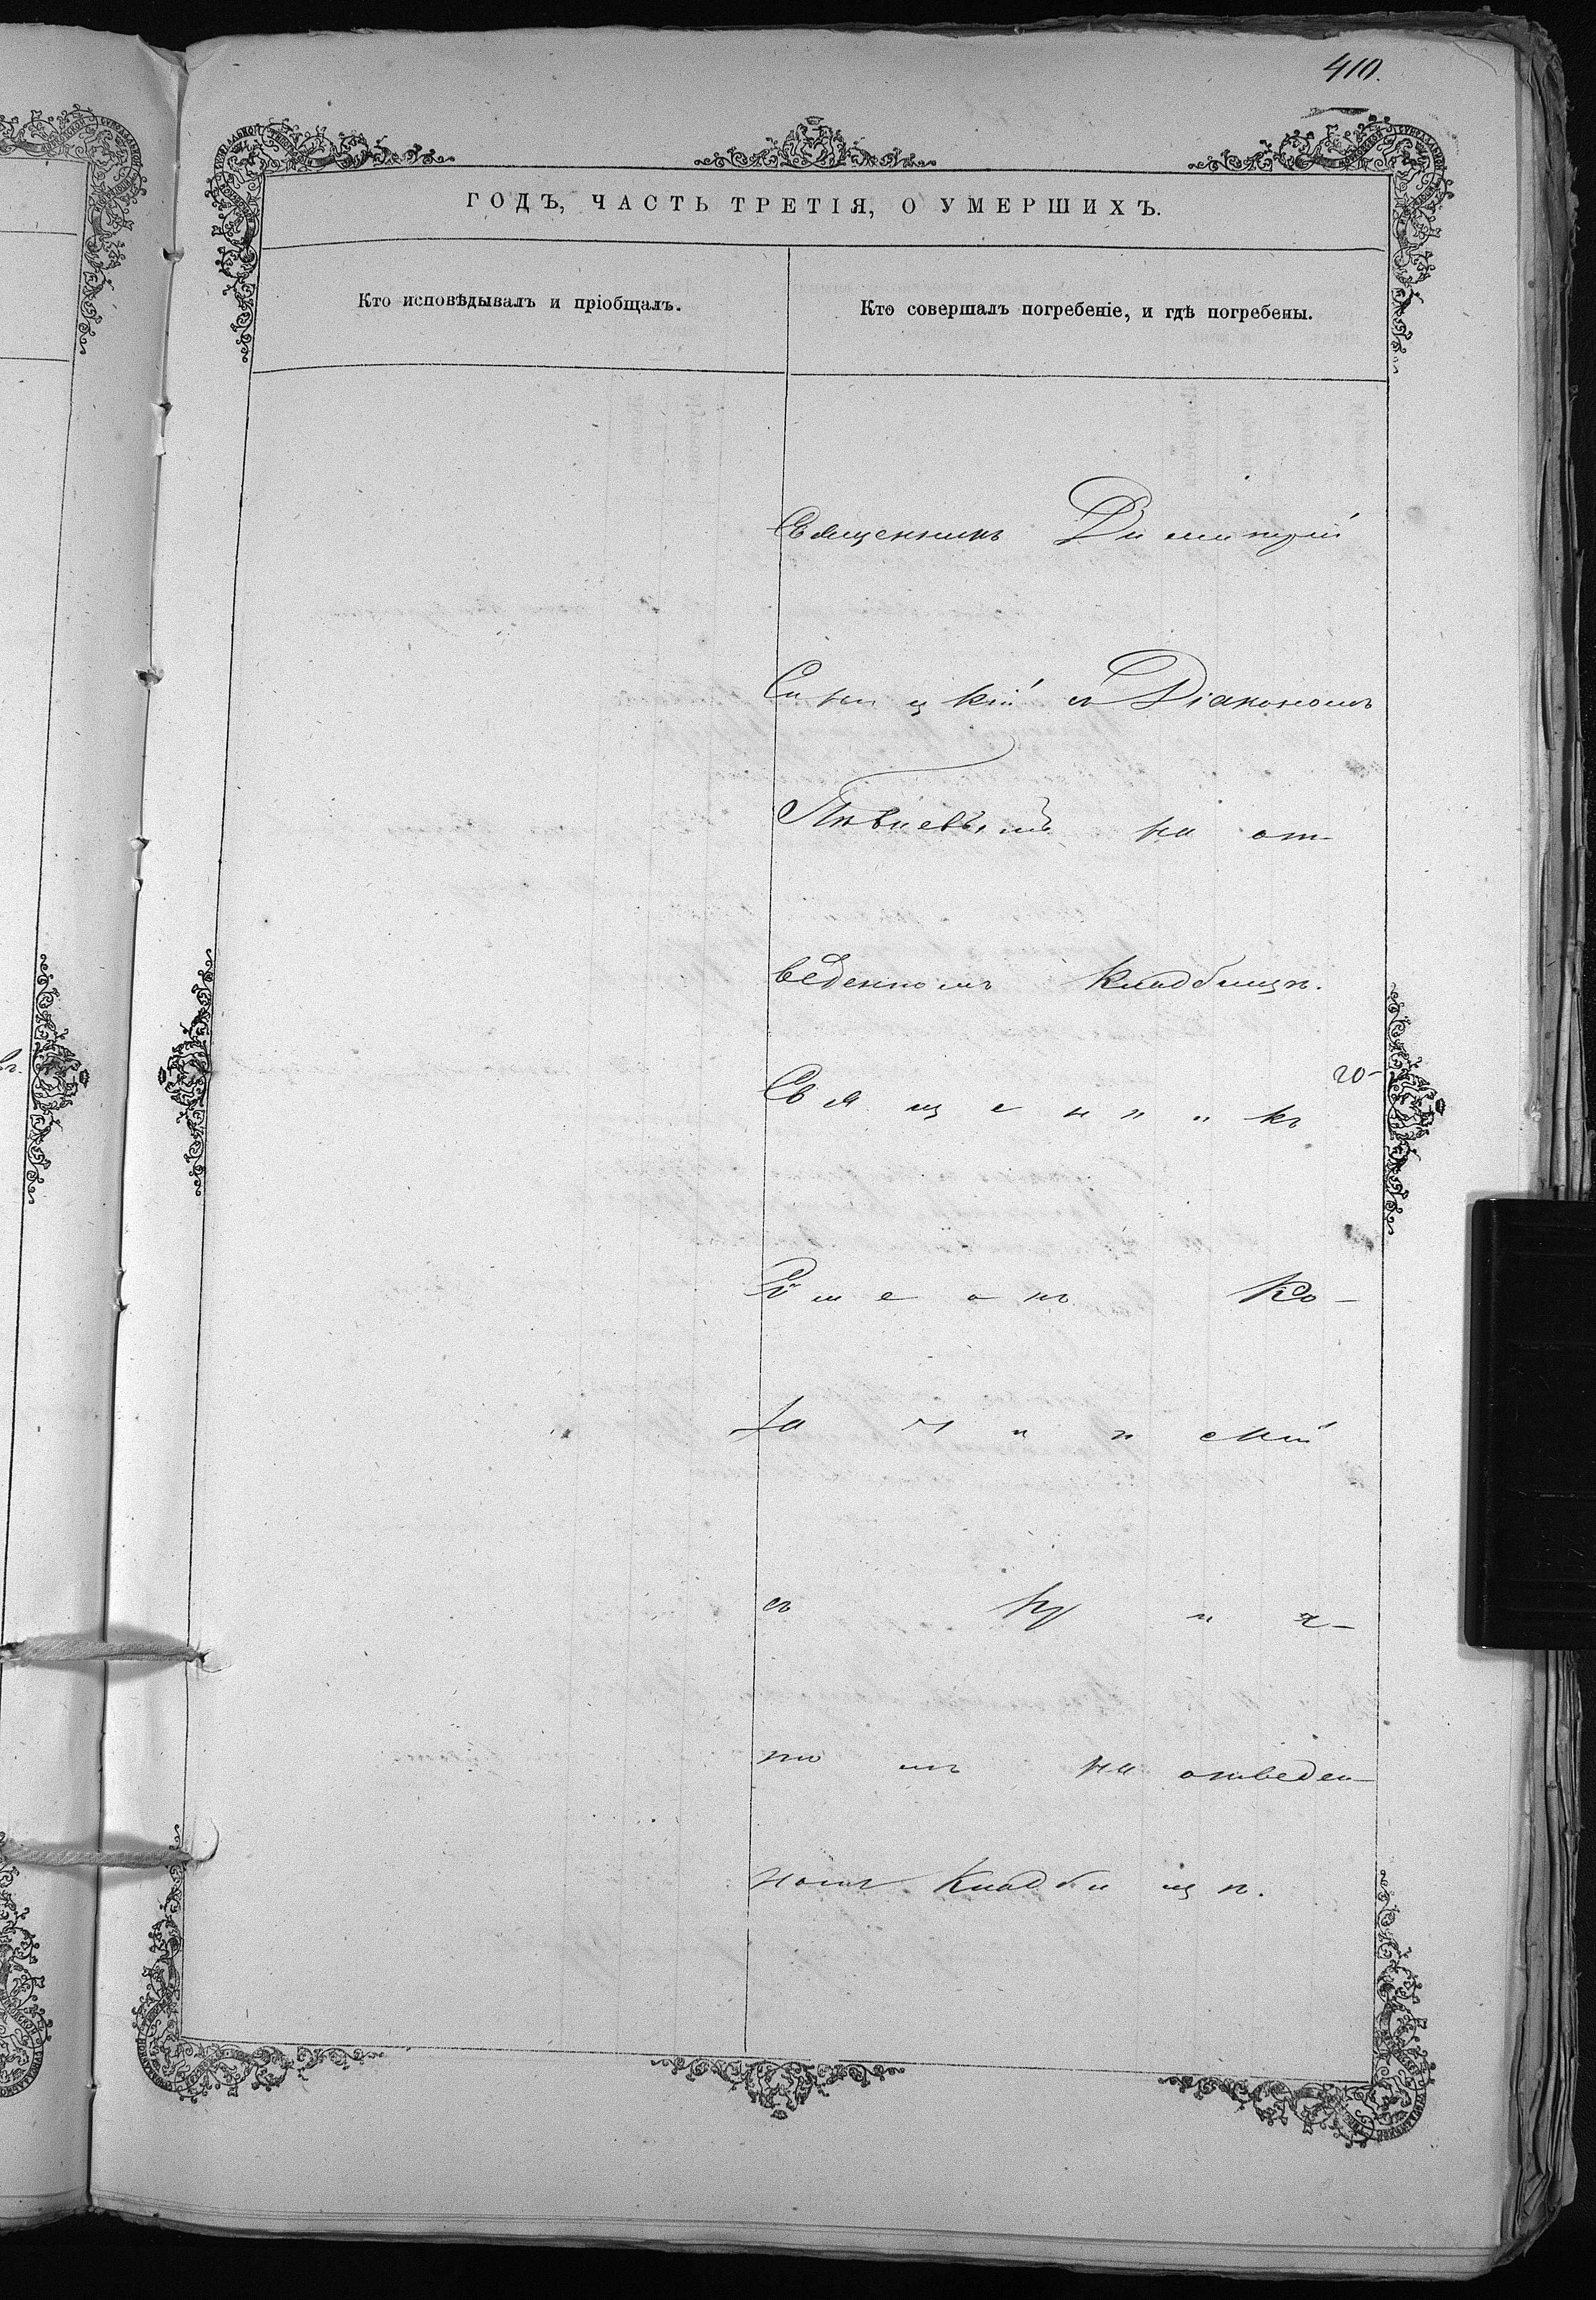 410.
ГОДЪ, ЧАСТЬ ТРЕТІЯ, О УМЕРШИХЪ.
Кто исповѣдывалъ и пріобщалъ.
Кто совершалъ погребеніе, и гдѣ погребены.
Священникъ Димитрій
Синицкій съ Діакономъ
на от-
веденномъ кладбищѣ.
Священникъ
Ко-
скій
съ прич-
томъ на отведен-
номъ кладбищѣ.